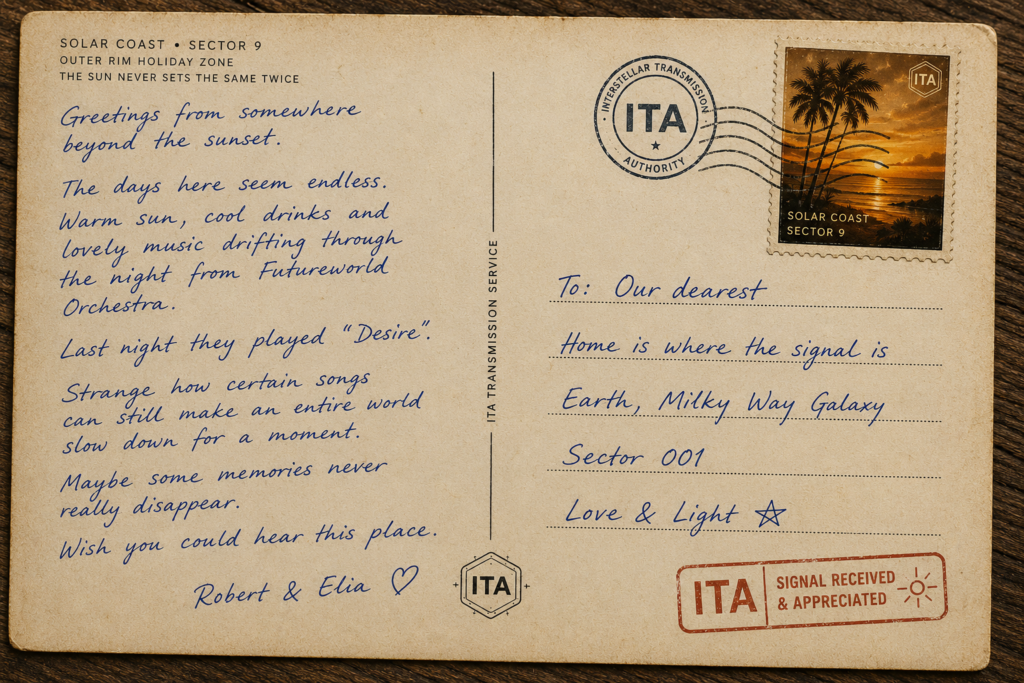 SOLAR COAST • SECTOR 9
OUTER RIM HOLIDAY ZONE
THE SUN NEVER SETS THE SAME TWICE
Greetings from somewhere
beyond the sunset.
The days here seem endless.
Warm sun, cool drinks and
lovely music drifting through
the night from Futureworld
Orchestra.
Last night they played "Desire".
Strange how certain songs
can still make an entire world
slow down for a moment.
Maybe some memories never
really disappear.
Wish you could hear this place.
Robert & Elia ♡
ITA TRANSMISSION SERVICE
ITA
INTERSTELLAR TRANSMISSION
ITA
AUTHORITY
ITA
SOLAR COAST
SECTOR 9
To: Our dearest
Home is where the signal is
Earth, Milky Way Galaxy
Sector 001
Love & Light ☆
ITA
SIGNAL RECEIVED
& APPRECIATED